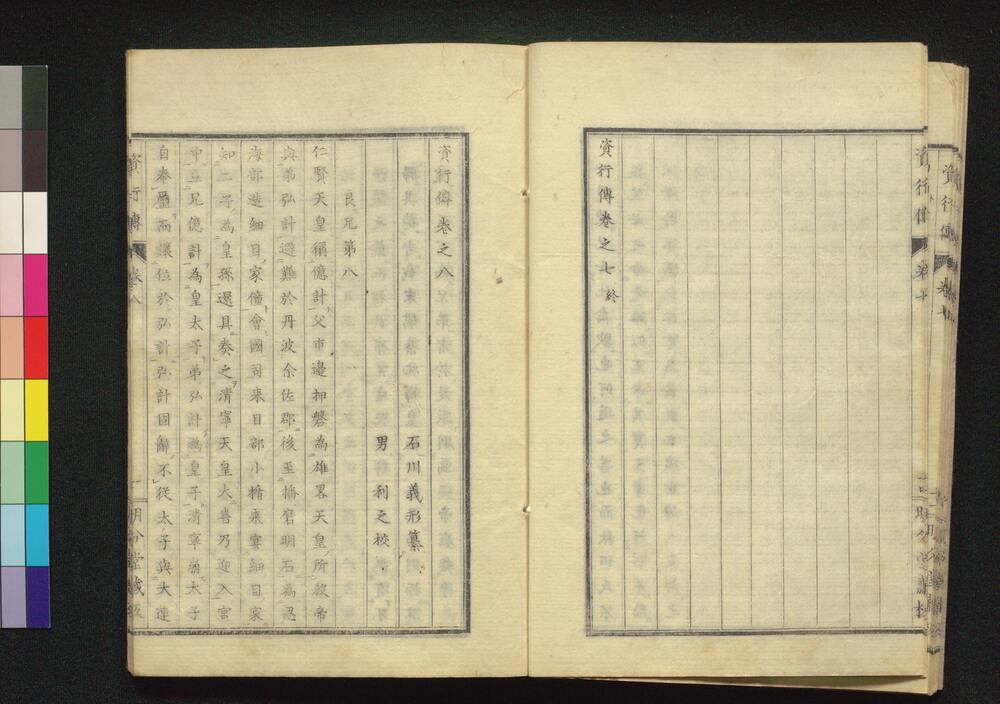 資行傳卷之七終
資行傳卷之八
石川義形纂
男 利之校
良兄第八
仁賢天皇稱億計父市邊押磐為雄畧天皇所殺帝
與弟弘計避難於丹波余佐郡後至播磨明石為忍
海部造細目家僮會國司來目部小楯來宴細目家
知二子為皇孫還具奏之清寧天皇大喜乃迎入宮
中立兄億計為皇太子弟弘計為皇子清寧崩太子
自奉璽而讓位於弘計弘計固辭不從太子與大連
資行傳 卷八 一